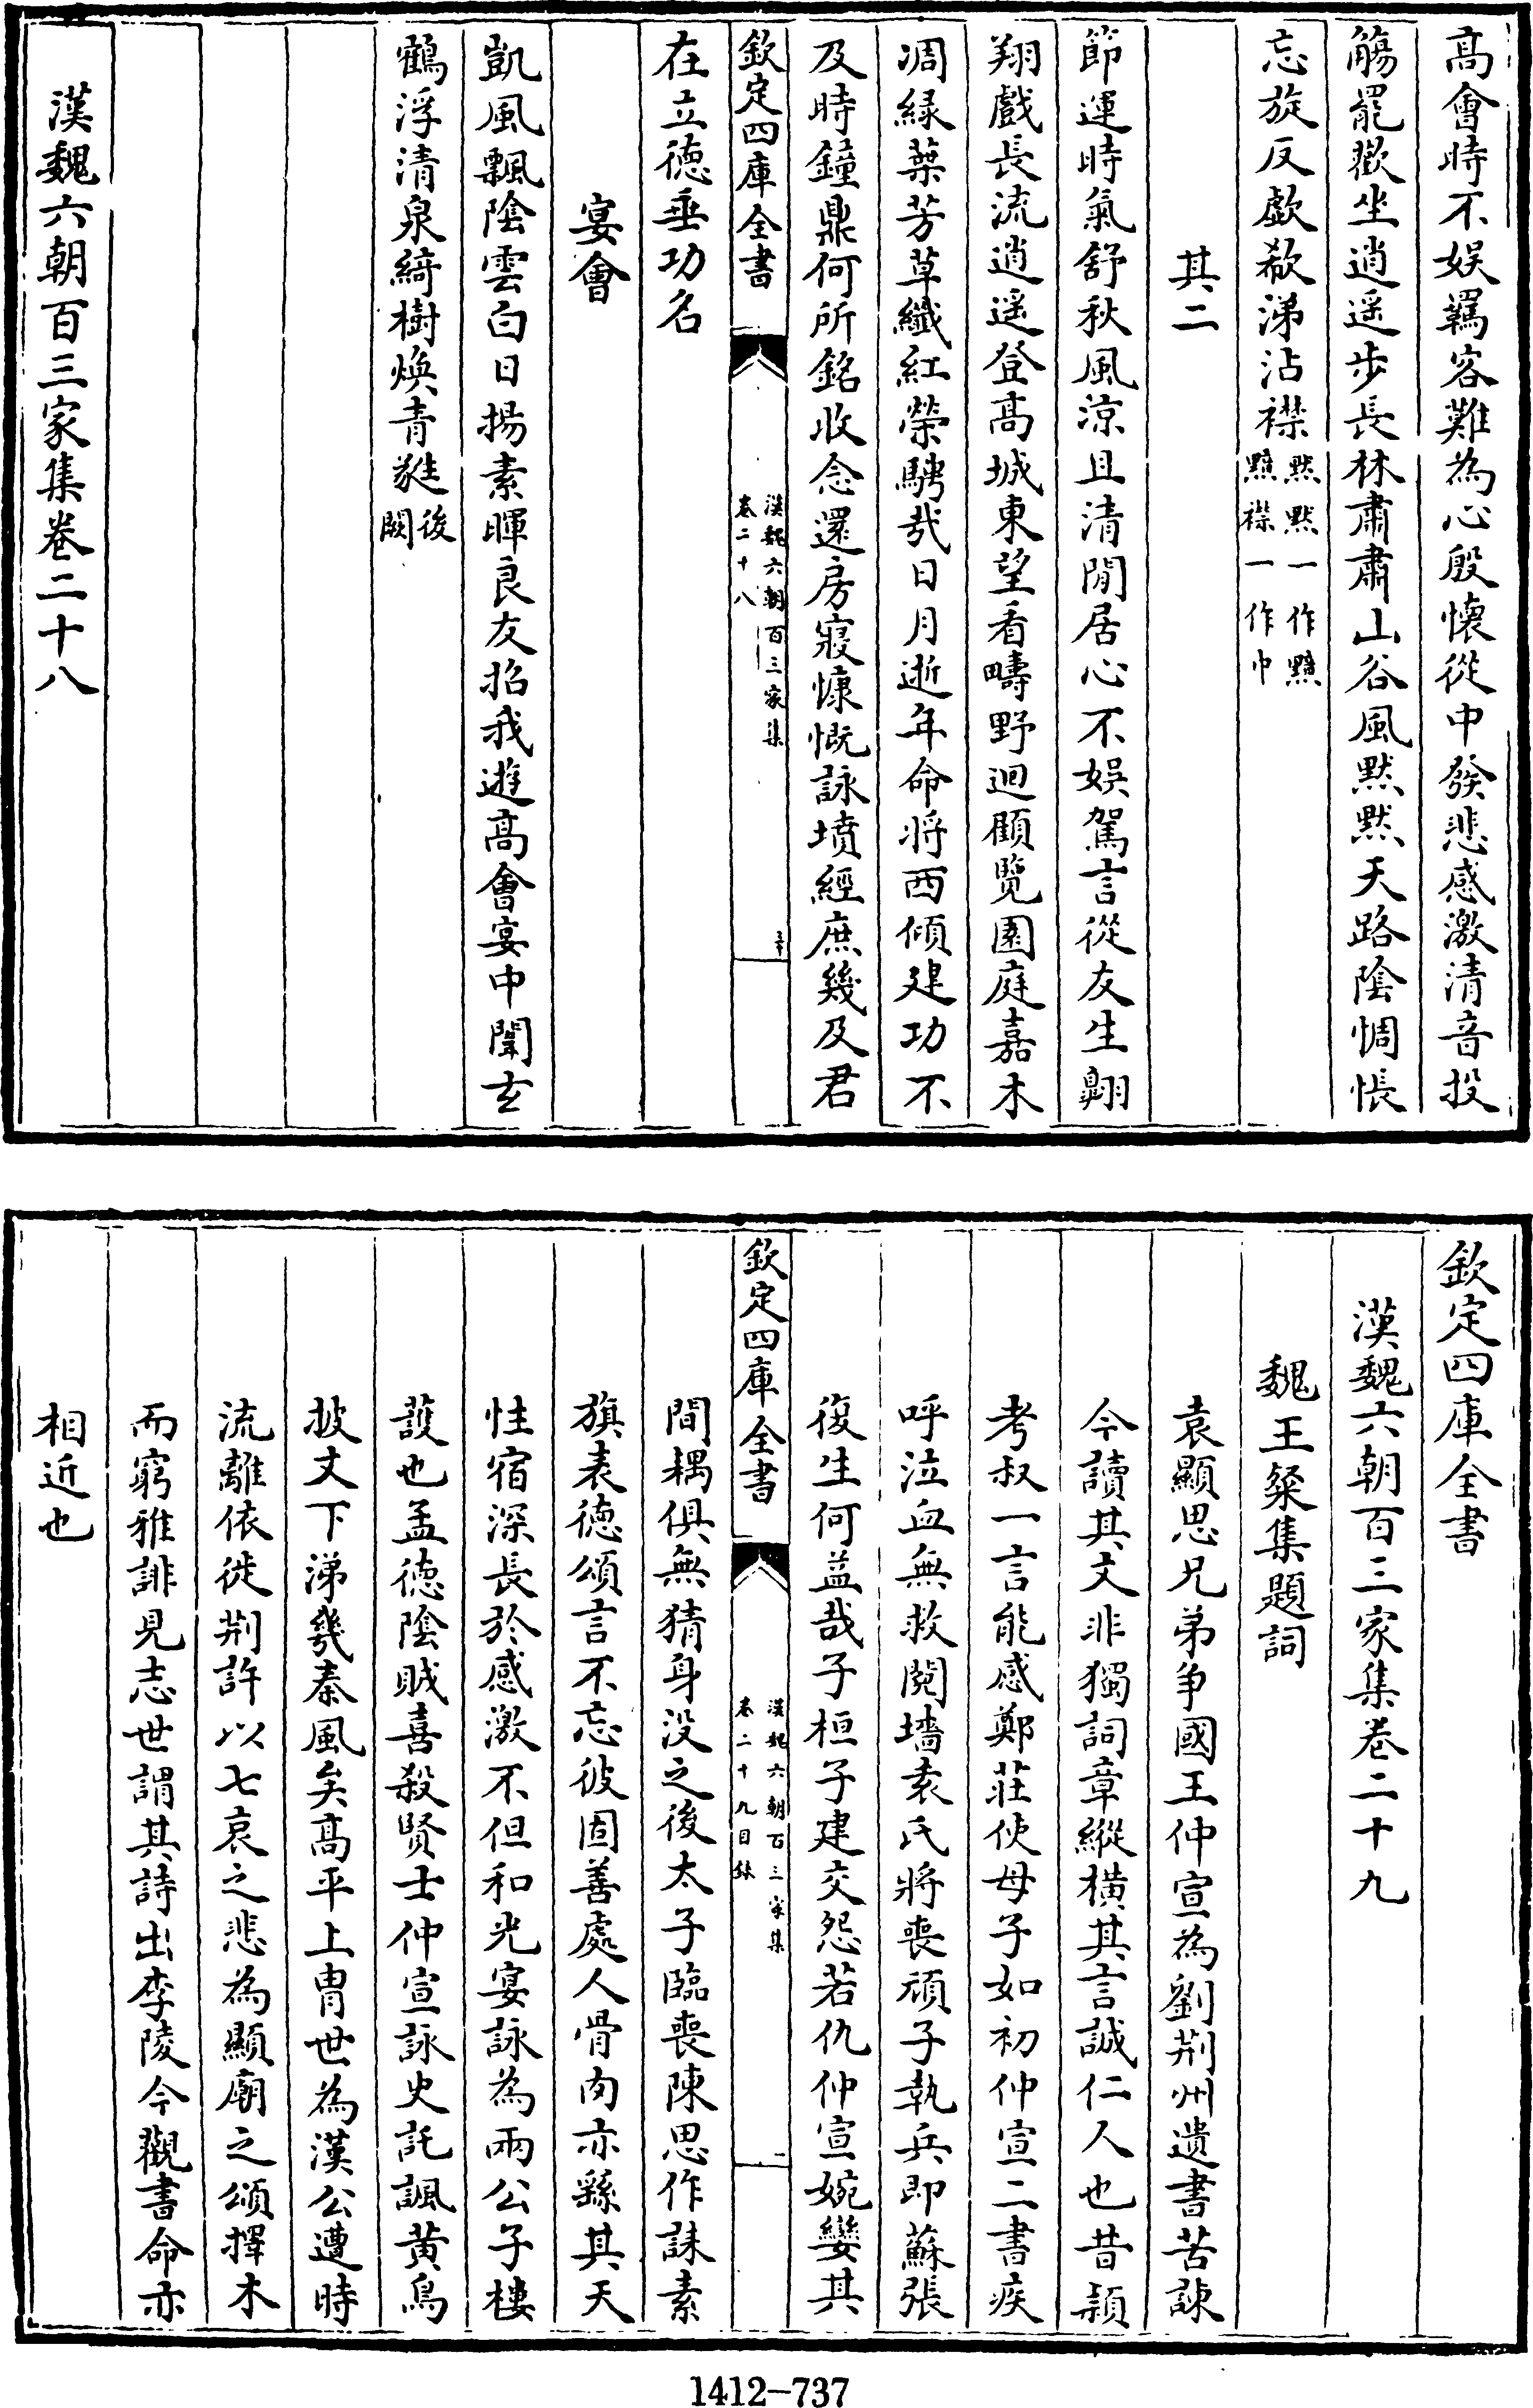 高會時不娱羈客難為心殷懷從中發悲感激清音投
觴罷歡坐逍遥步長林肅肅山谷風黙黙天路陰惆悵
忘旋反歔欷涕沾襟黙黙一作黯黯襟一作巾
其二
節運時氣舒秋風凉且清閒居心不娱駕言從友生翺
翔戲長流逍遥登髙城東望看疇野迴顧覽園庭嘉木
凋緑葉芳草纖紅榮騁哉日月逝年命將西傾建功不
及時鐘鼎何所銘收念還房寢慷慨詠墳經庶幾及君
欽定四庫全書
漢魏六朝百三家集
卷二十八
在立徳垂功名
宴會
凱風飄陰雲白日揚素暉良友招我遊髙會宴中闈玄
鶴浮清泉綺樹煥青蕤後闕
漢魏六朝百三家集卷二十八
欽定四庫全書
漢魏六朝百三家集卷二十九
魏王粲集題詞
袁顯思兄弟争國王仲宣為劉荆州遺書苦諫
今讀其文非獨詞章縱横其言誠仁人也昔潁
考叔一言能感鄭莊使母子如初仲宣二書疾
呼泣血無救閱墻袁氏將喪頑子執兵即蘇張
復生何益哉子桓子建交怨若仇仲宣婉孌其
欽定四庫全書
漢魏六朝百三家集
卷二十九目録
一
間耦俱無猜身没之後太子臨喪陳思作誄素
旗表徳頌言不忘彼固善處人骨肉亦繇其天
性宿深長於感激不但和光宴詠為兩公子樓
護也孟徳陰賊喜殺賢士仲宣詠史託諷黄鳥
披文下涕幾秦風矣髙平上胄世為漢公遭時
流離依徙荆許以七哀之悲為顯廟之頌擇木
而窮雅誹見志世謂其詩出李陵今觀書命亦
相近也
1412-737